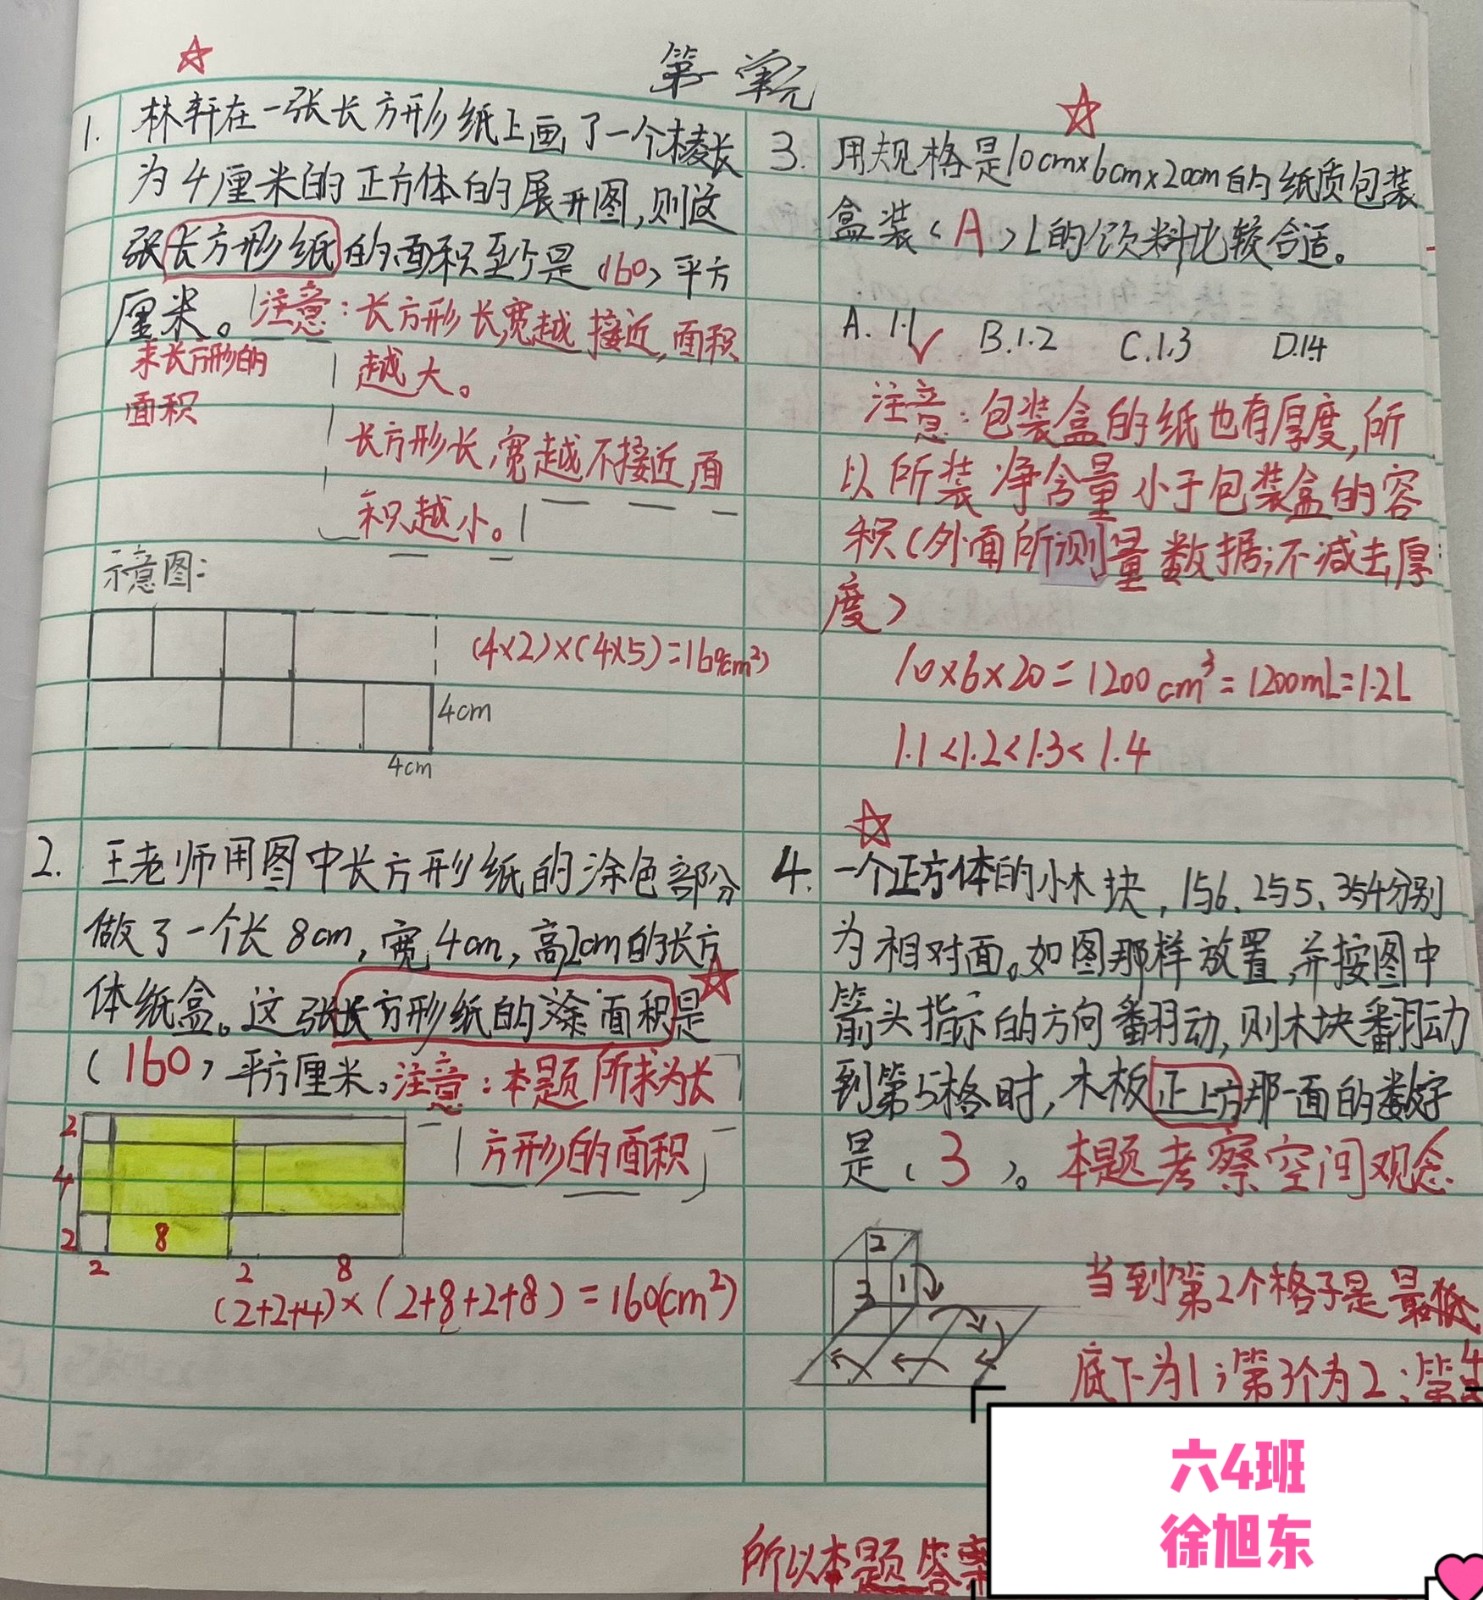 第一单元
1. 林轩在一张长方形纸上画了一个棱长
为4厘米的正方体的展开图,则这
张长方形纸的面积至少是(160)平方
厘米。注意:长方形长,宽越接近,面积
求长方形的
面积
越大。
长方形长,宽越不接近,面
积越小。
示意图:
(4×2)×(4×5)=160(cm²)
4cm
4cm
2. 王老师用图中长方形纸的涂色部分
做了一个长8cm,宽4cm,高2cm的长方
体纸盒。这张长方形纸的涂面积是
(160)平方厘米。注意:本题所求为长
方形的面积
2
4
2
8
2
2
8
(2+2+4)×(2+8+2+8)=160(cm²)
3. 用规格是10cm×6cm×20cm的纸质包装
盒装(A)L的饮料比较合适。
A. 1.1 B.1.2 C.1.3 D.1.4
注意:包装盒的纸也有厚度,所
以所装净含量小于包装盒的容
积(外面所测量数据;不减去厚
度)
10×6×20=1200cm³=1200mL=1.2L
1.1<1.2<1.3<1.4
4. 一个正方体的小木块,1与6、2与5、3与4分别
为相对面。如图那样放置,并按图中
箭头指示的方向翻动,则木块翻动
到第5格时,木板正上方那一面的数字
是(3)。本题考察空间观念
2
3
1
当到第2个格子是最低
底下为1;第3个为2;第4
所以本题答案
六4班
徐旭东